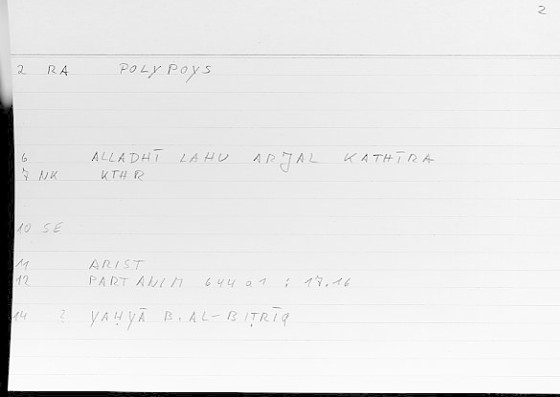 2
2 RA POLYPOYS
6 ALLADHĪ LAHU ARJAL KATHĪRA
7 NK KTHR
10 SE
11 ARIST
12 PART ANIM 644a1 : 17.16
14 ? YAḤYĀ B. AL-BIṬRĪQ